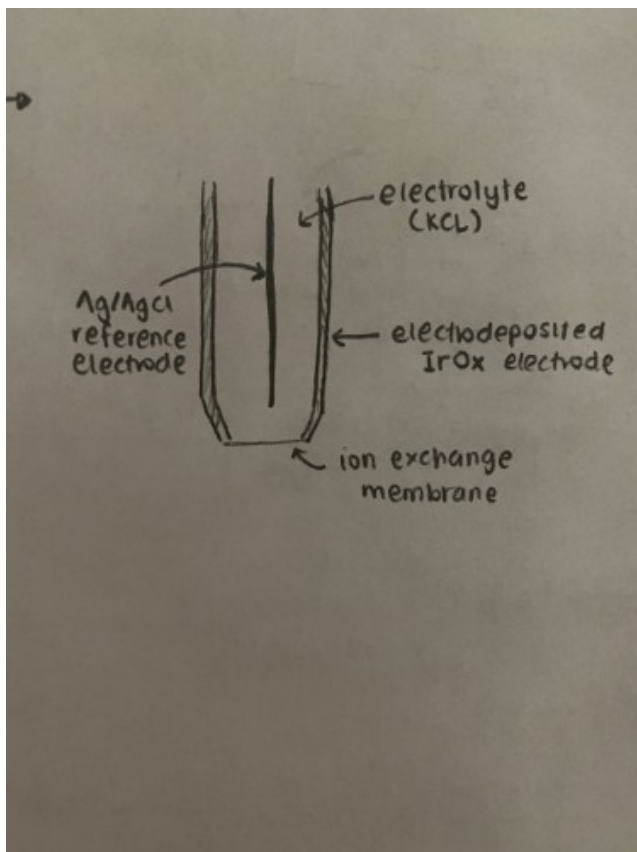 electrolyte
(KCL)
Ag/AgCl
reference
electrode
electrodeposited
IrOx electrode
ion exchange
membrane